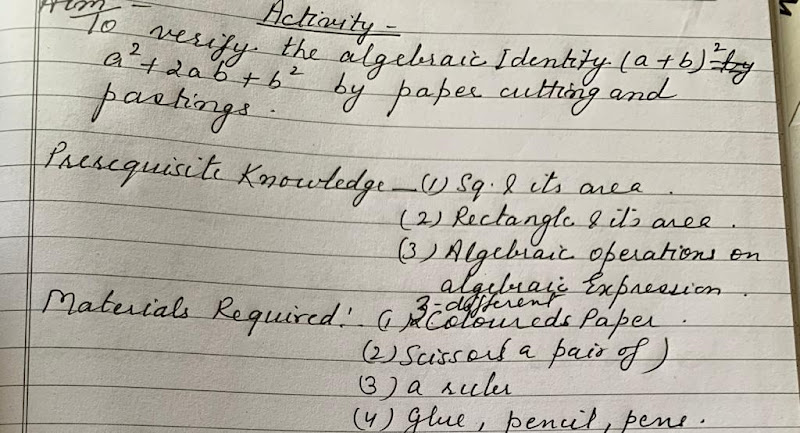 Activity -
Aim -
To verify the algebraic Identity (a+b)² =
a² + 2ab + b² by paper cutting and
pastings.
Prerequisite Knowledge - (1) Sq. & its area.
(2) Rectangle & its area.
(3) Algebraic operations on
algebraic Expression.
Materials Required:- (1) 3-different Coloureds Paper.
(2) Scissors a pair of )
(3) a ruler
(4) Glue, pencil, pens.